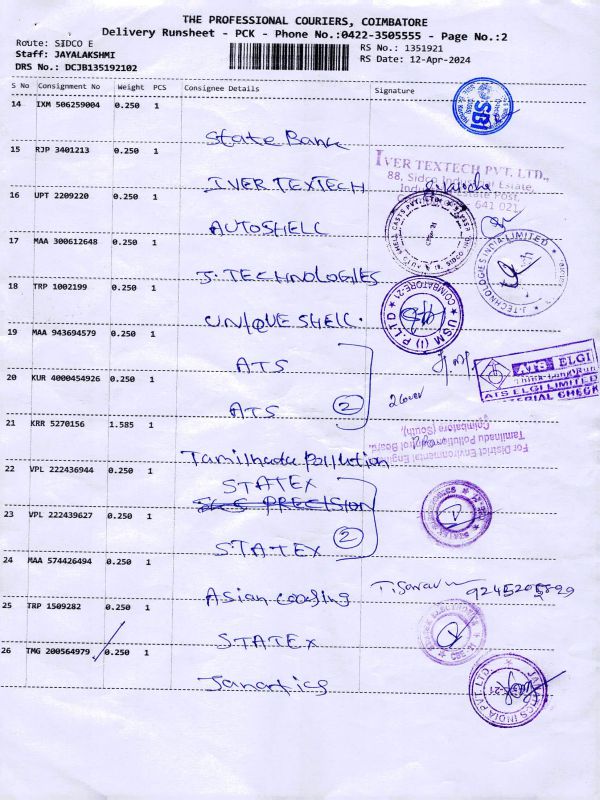 THE PROFESSIONAL COURIERS, COIMBATORE
Delivery Runsheet - PCK - Phone No.:0422-3505555 - Page No.:2
Route: SIDCO E
Staff: JAYALAKSHMI
DRS No.: DCJB135192102
RS No.: 1351921
RS Date: 12-Apr-2024
S No Consignment No Weight PCS Consignee Details Signature
14 IXM 506259004 0.250 1
SBI
State Bank
15 RJP 3401213 0.250 1
IVER TEXTECH PVT. LTD.,
88, Sidco Industrial Estate,
641 021
IVER TEXTECH
16 UPT 2209220 0.250 1
AUTOSHELL
17 MAA 300612648 0.250 1
J-TECHNOLOGIES INDIA LIMITED
J. TECHNOLOGIES
18 TRP 1002199 0.250 1
USM (I) P.LTD COIMBATORE-21
UNIQUE SHELL.
19 MAA 943694579 0.250 1
ATS
ATS ELGI
ATS ELGI LIMITED
20 KUR 4000454926 0.250 1
2 cover
ATS 2
21 KRR 5270156 1.585 1
For District Environmental Engineer
Tamilnadu Pollution Control Board,
Coimbatore (South).
Tamilnadu Pollution
22 VPL 222436944 0.250 1
STATEX
SCS PRECISION
23 VPL 222439627 0.250 1
2
STATEX
24 MAA 574426494 0.250 1
Asian coating
25 TRP 1509282 0.250 1
STATEX
26 TMG 200564979 0.250 1
JANATICS INDIA PVT. LTD.
Janatics